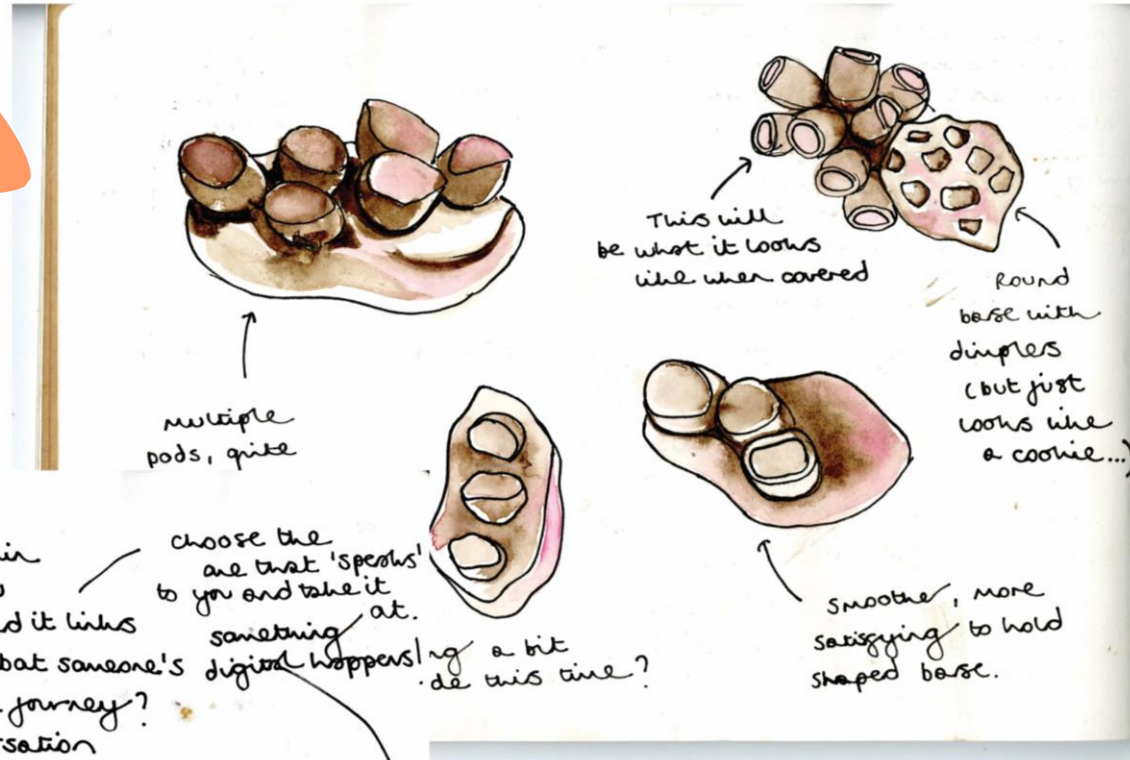 This will
be what it looks
like when covered
Round
base with
dimples
(but just
looks like
a cookie...)
Multiple
pods, quite
choose the
one that 'speaks'
to you and take it
at.
something
digital happens!
d it links
bat someone's
journey?
sation
a bit
this time?
Smoother, more
satisfying to hold
shaped base.